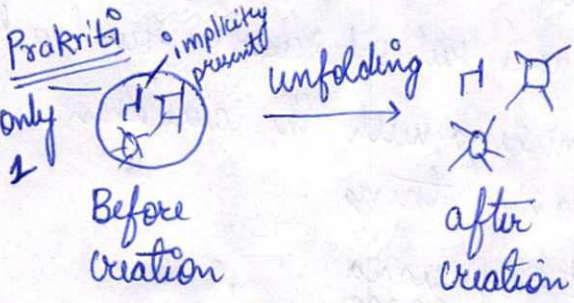 Prakriti
only
1
implicitly
present
unfolding
Before
creation
after
creation